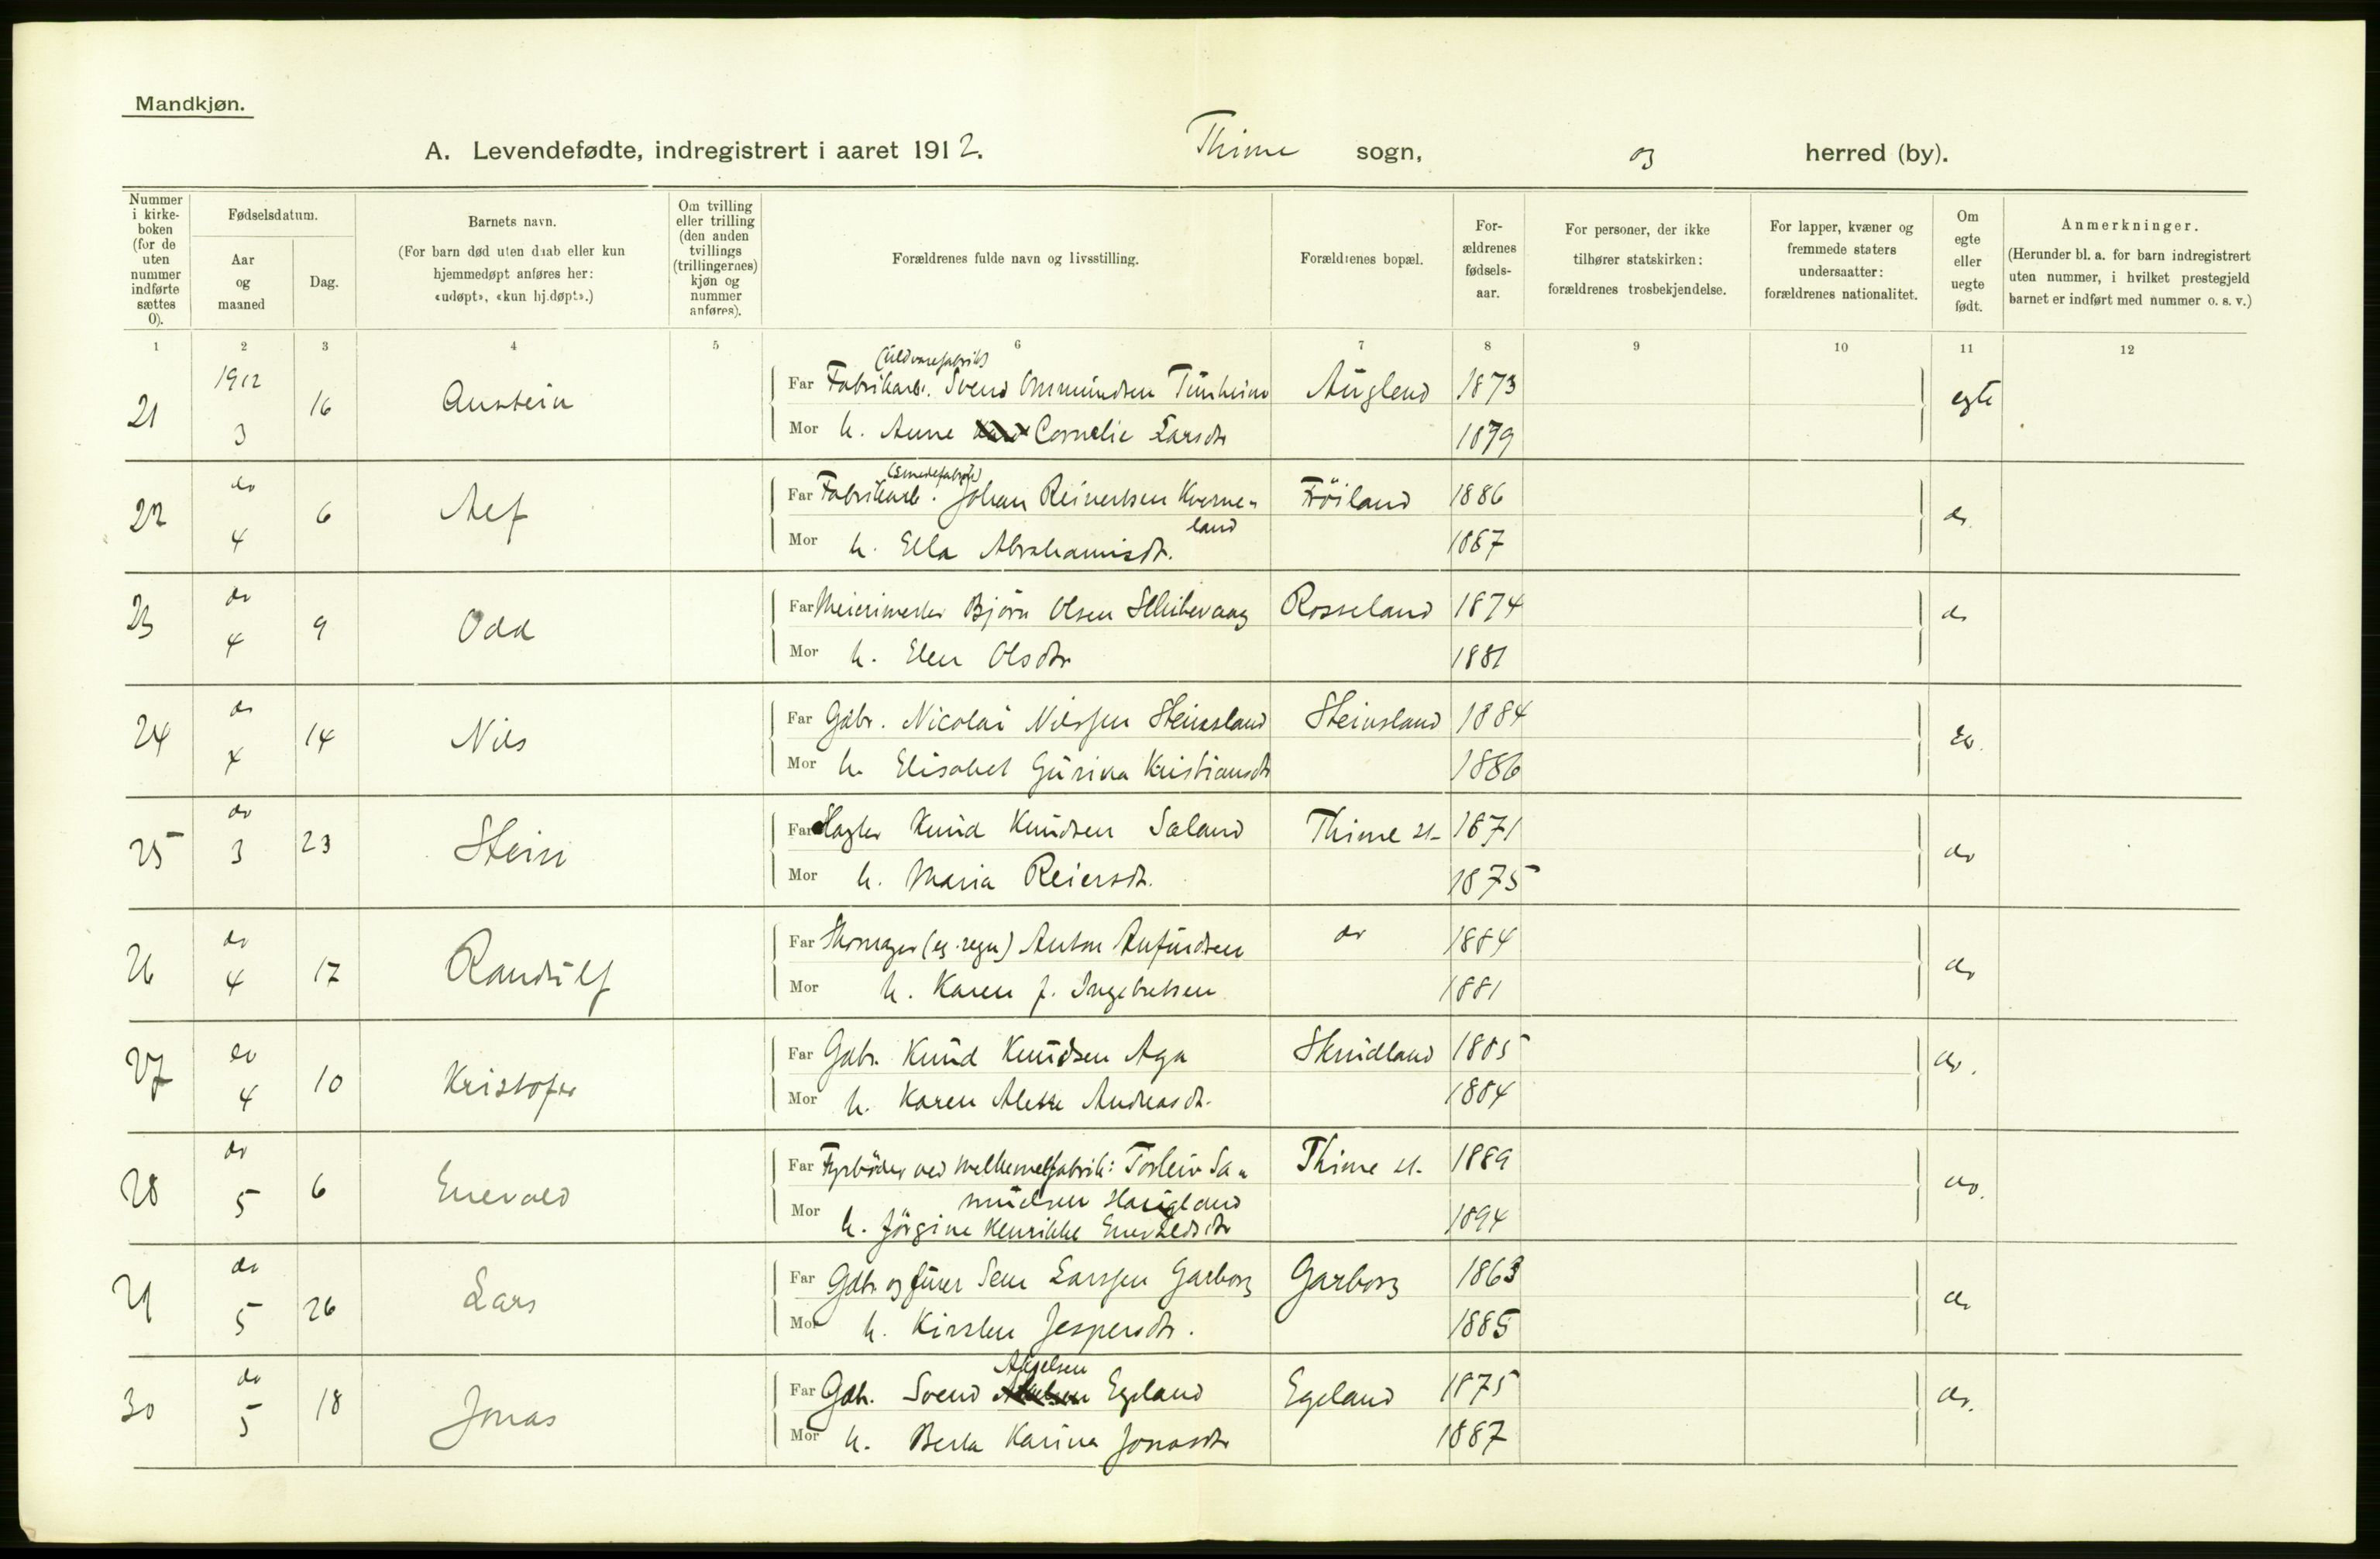 Mandkjøn.
A. Levendefødte, indregistrert i aaret 1912. Thime sogn, og herred (by).
Nummer i kirkeboken (for de uten nummer indførte sættes 0).
Fødselsdatum.
Aar og maaned
Dag.
Barnets navn.
(For barn død uten daab eller kun hjemmedøpt anføres her: «udøpt», «kun hj.døpt».)
Om tvilling eller trilling (den anden tvillings (trillingernes) kjøn og nummer anføres).
Forældrenes fulde navn og livsstilling.
Forældrenes bopæl.
Forældrenes fødselsaar.
For personer, der ikke tilhører statskirken: forældrenes trosbekjendelse.
For lapper, kvæner og fremmede staters undersaatter: forældrenes nationalitet.
Om egte eller uegte født.
Anmerkninger.
(Herunder bl. a. for barn indregistrert uten nummer, i hvilket prestegjeld barnet er indført med nummer o. s. v.)
1 2 3 4 5 6 7 8 9 10 11 12
(Uldvarefabrik)
21 1912 3 16 Austein Far Fabrikarb. Svend Ommundsen Tunheim Auglend 1873 egte
Mor h. Anne Cornelie Larsdtr 1879
(Smedefabrik)
22 do 4 6 Alf Far Fabrikarb. Johan Reinertsen Kverneland Frøiland 1886 do
Mor h. Ella Abrahamsdtr. 1887
23 do 4 9 Odd Far Meierimester Bjørn Olsen Rosseland 1874 do
Mor h. Elen Olsdtr 1881
24 do 4 14 Nils Far Gdbr. Nicolai Nilssen Steinsland Steinsland 1884 do.
Mor h. Elisabet Gurina Kristiansdtr 1886
25 do 3 23 Stein Far Slagter Knud Knudsen Sæland Thime st. 1871 do
Mor h. Maria Reiersdtr. 1875
26 do 4 17 Randulf Far Skomager (eg. regn) Anton Anfindsen do 1884 do
Mor h. Karen f. Ingebretsen 1881
27 do 4 10 Kristofer Far Gdbr. Knud Knudsen Aga Skrudland 1885 do.
Mor h. Karen Alette Andreasdtr. 1884
28 do 5 6 Enevald Far Fyrbøder ved melkemelfabrik: Torleiv Samuelsen Haugland Thime st. 1889 do.
Mor h. Jørgine Henrikke Enevaldsdtr 1894
29 do 5 26 Lars Far Gdbr og furer Sem Larssen Garborg Garborg 1863 do
Mor h. Kirsten Jespersdtr. 1885
30 do 5 18 Jonas Far Gdb. Svend Axelsen Egeland Egeland 1875 do.
Mor h. Berta Karina Jonasdtr 1887